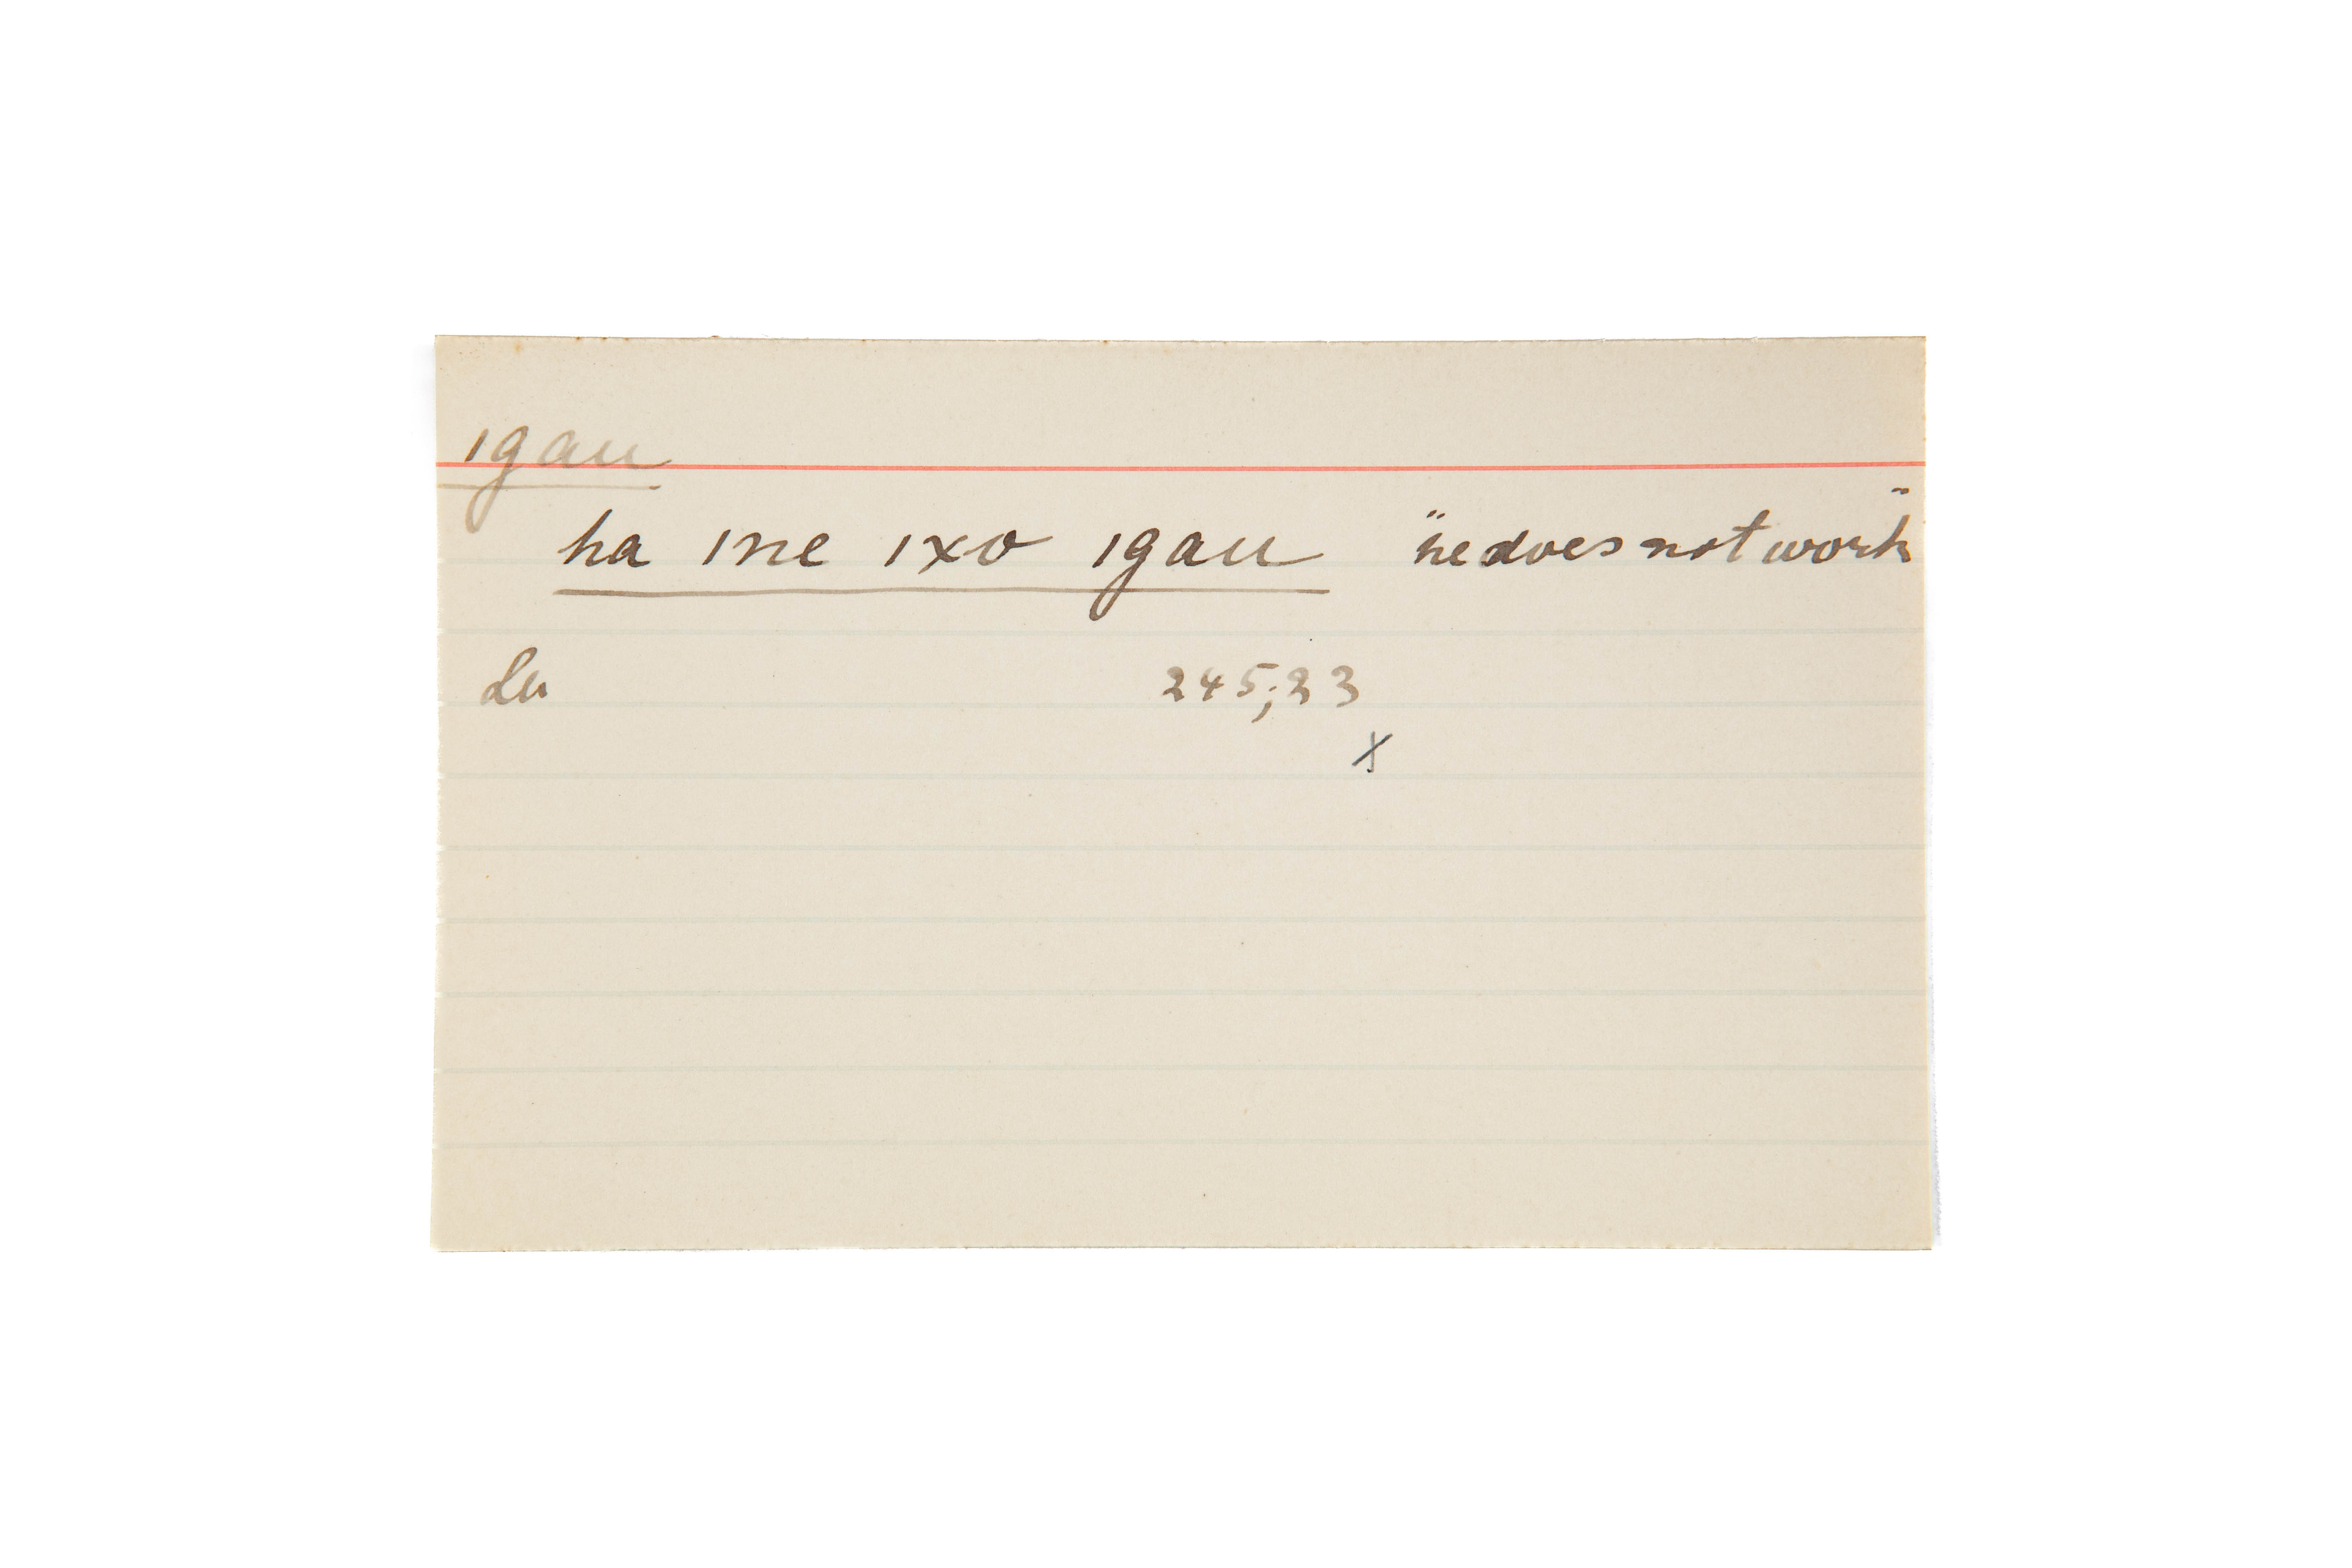 ıgau
ha ıne ıxo ıgau "he does not work"
Lu 245;23
x